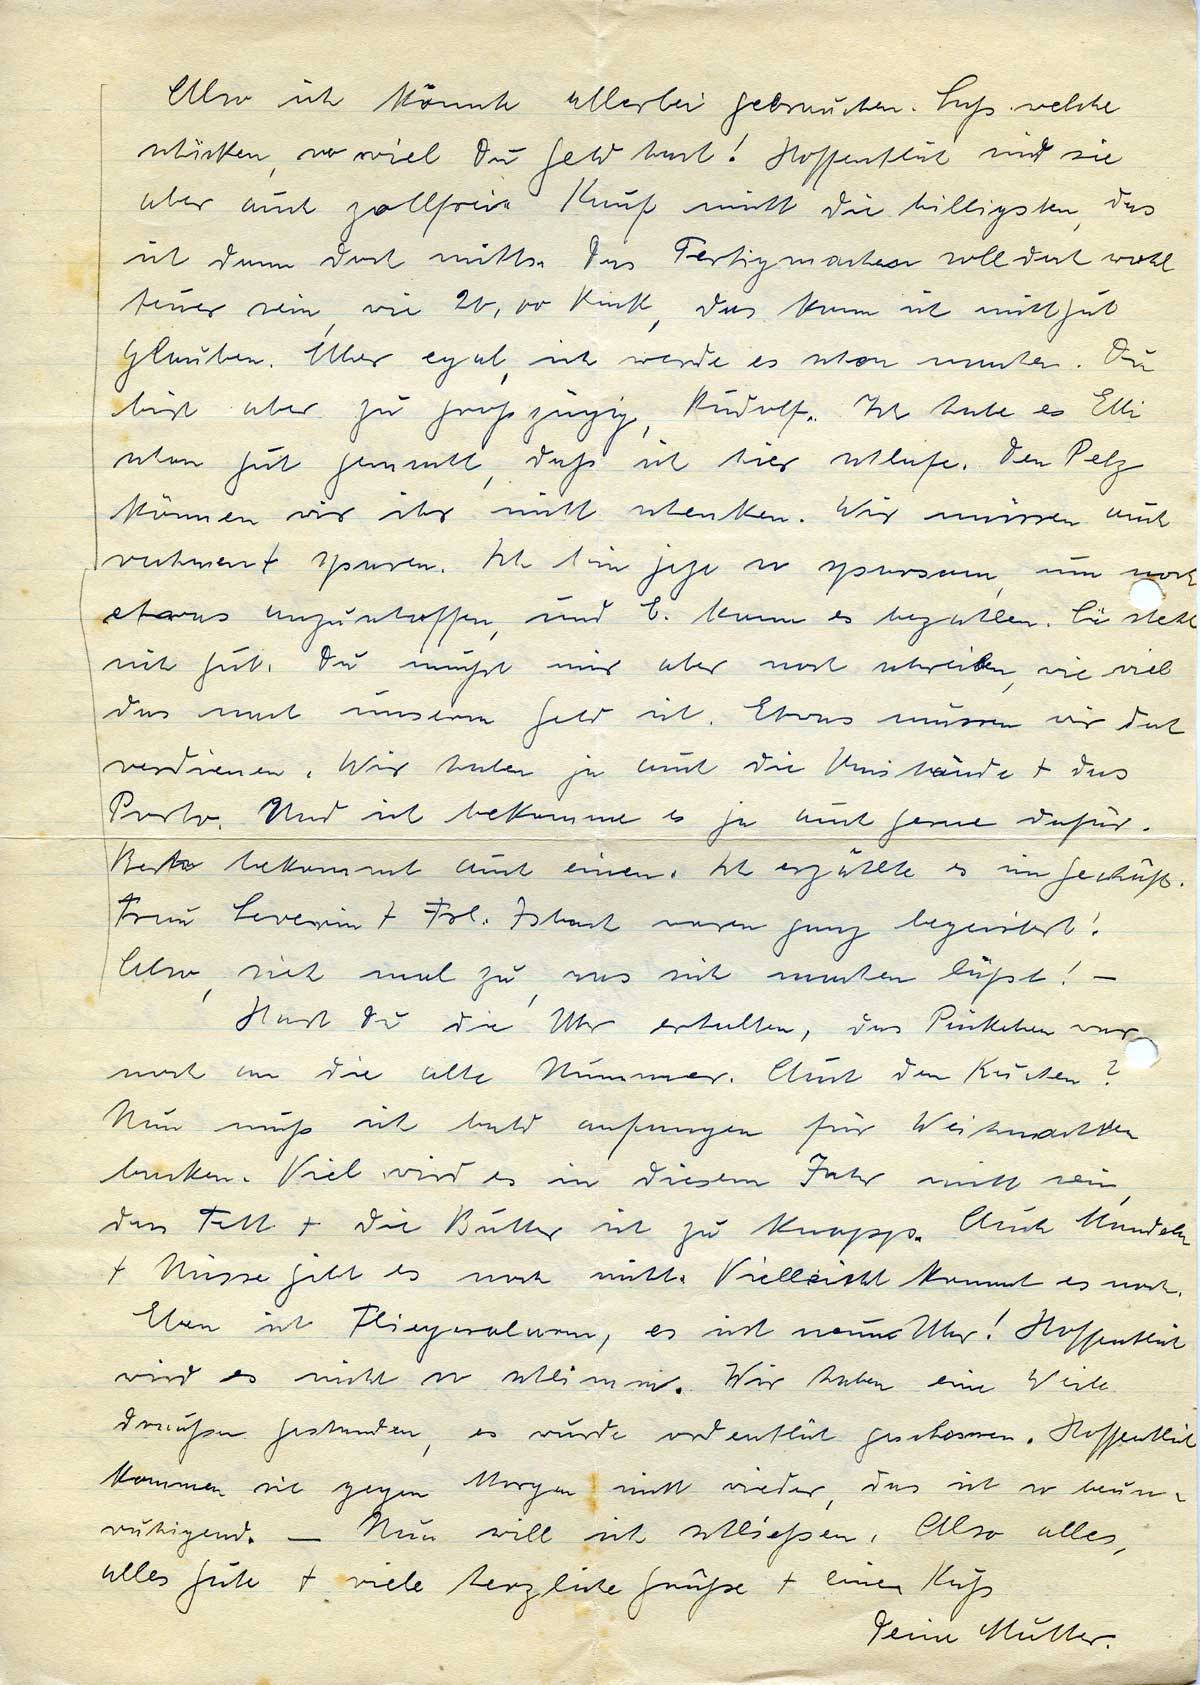 Also ich könnte allerlei gebrauchen. Laß welche
schicken, so viel Du Geld hast! Hoffentlich sind sie
aber auch zollfrei. Kauf nicht die billigsten, das
ist dann doch nichts. Das Fertigmachen soll dort wohl
teuer sein, wie 20,00 das kann ich nicht gut
glauben. Aber egal, ich werde es schon machen. Du
bist aber zu großzügig, Rudolf. Ich habe es Elli
schon gut gemacht, daß ich hier schlafe. Den Pelz
können wir ihr nicht schenken. Wir müssen auch
rechnen + sparen. Ich bin jetzt so sparsam, um noch
etwas anzuschaffen, und E. kann es bezahlen. Sie steht
sich gut. Du mußt mir aber noch schreiben, wie viel
das nach unserem Geld ist. Etwas müssen wir doch
verdienen. Wir haben ja auch die Umstände + das
Porto. Und ich bekomme es ja auch gerne dafür.
Berta bekommt auch einen. Ich erzählte es im Geschäft.
Frau Severin + Frl. Isbach waren ganz begeistert!
Also, sieh mal zu, was sich machen läßt! –
Hast Du die Uhr erhalten, das Päckchen war
noch an die alte Nummer. Auch den Kuchen?
Nun muß ich bald anfangen für Weihnachten
backen. Viel wird es in diesem Jahr nicht sein,
das Fett + die Butter ist zu knapp. Auch Mandeln
+ Nüsse gibt es noch nicht. Vielleicht kommt es noch.
Eben ist Fliegeralarm, es ist neun Uhr! Hoffentlich
wird es nicht so schlimm. Wir haben eine Weile
draußen gestanden, es wurde ordentlich geschossen. Hoffentlich
kommen sie gegen Morgen nicht wieder, das ist so beun-
ruhigend. – Nun will ich schließen. Also alles,
alles Gute + viele herzliche Grüße + einen Kuß
Deine Mutter.